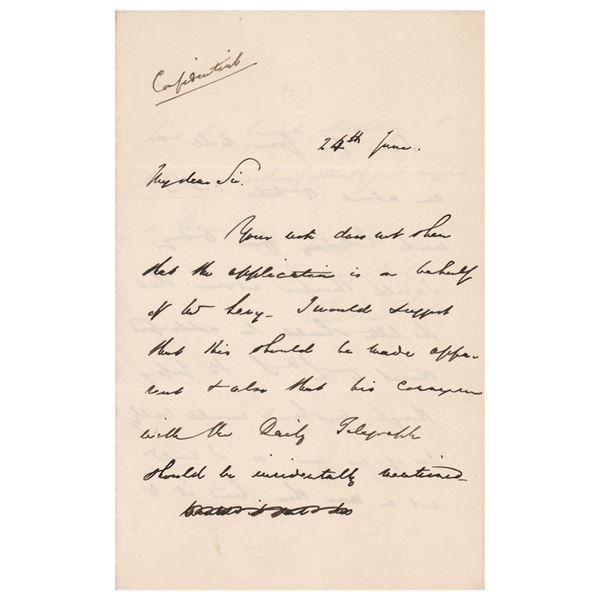 Confidential
24th June.
My dear Sir.
Your note does not shew
that the application is on behalf
of Mr Levy - I would suggest
that this should be made appa-
rent & also that his connexion
with the Daily Telegraph
should be incidentally mentioned.